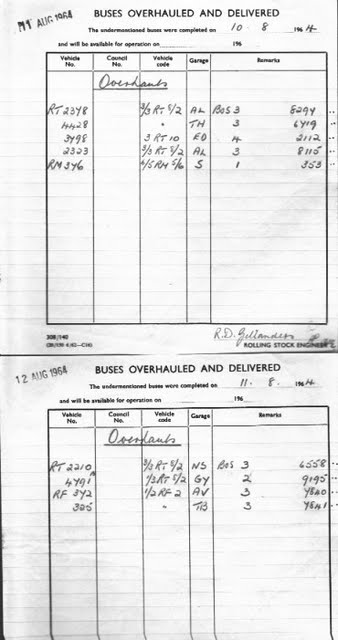 11 AUG 1964
BUSES OVERHAULED AND DELIVERED
The undermentioned buses were completed on 10 . 8 . 1964
and will be available for operation on 196
Vehicle No. Council No. Vehicle code Garage Remarks
Overhauls
RT 2378 3/3 RT 8/2 AL BOS 3 8294
4428 " TH 3 6419
3498 3 RT 10 ED 4 2112
2323 3/3 RT 8/2 AL 3 8115
RM 346 4/5 RM 5/6 S 1 353
308/140
R.D. Gellanders
ROLLING STOCK ENGINEER
12 AUG 1964
BUSES OVERHAULED AND DELIVERED
The undermentioned buses were completed on 11 . 8 . 1964
and will be available for operation on 196
Vehicle No. Council No. Vehicle code Garage Remarks
Overhauls
RT 2210 3/3 RT 5/2 NS BOS 3 6558
4791 1/3 RT 5/2 GY 2 9195
RF 342 1/2 RF 2 AV 3 4540
325 " TB 3 4541